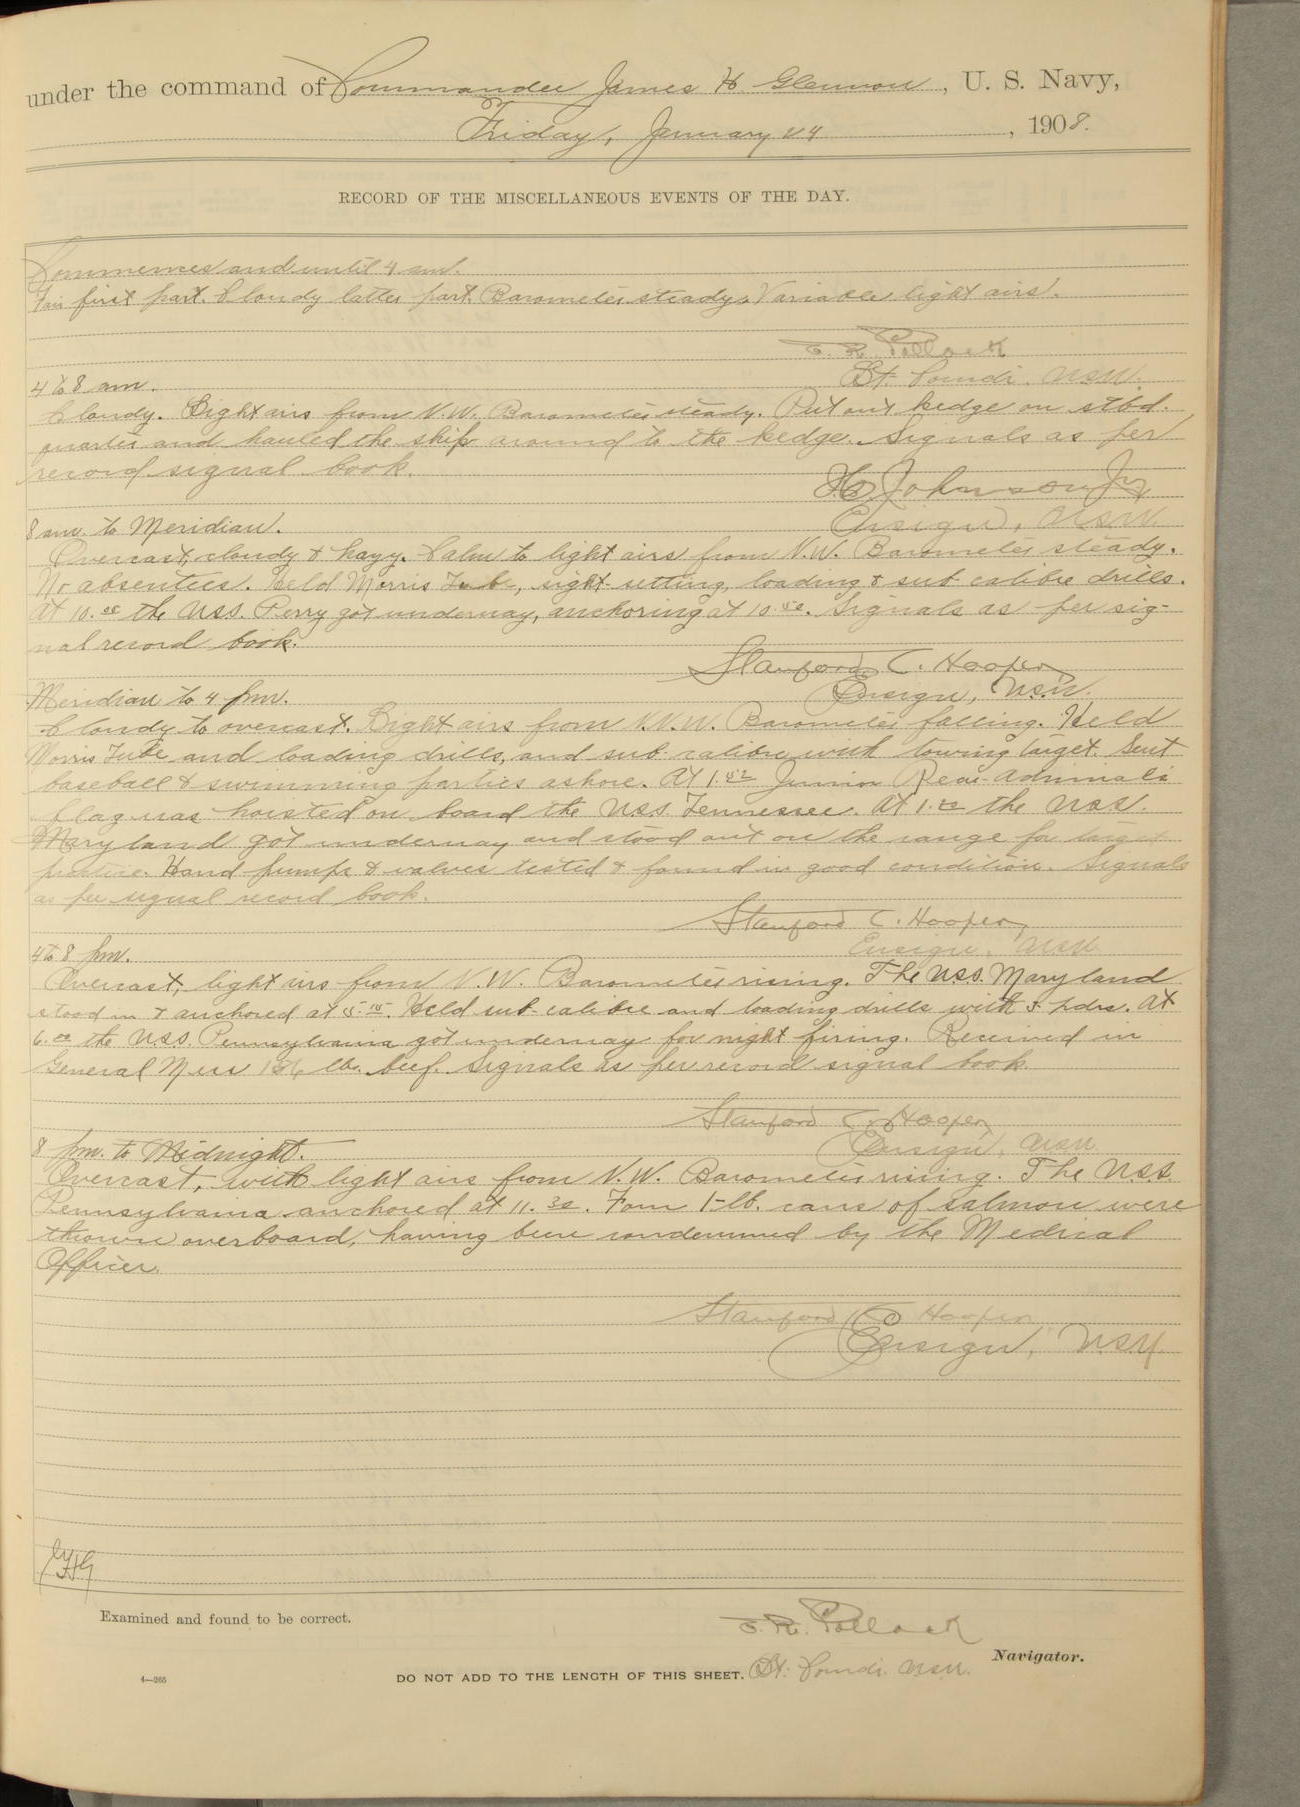 under the command of Commander James H Glennon, U. S. Navy,
Friday, January 24, 1908.
RECORD OF THE MISCELLANEOUS EVENTS OF THE DAY.
Commences and until 4 am.
Fair first part. Cloudy latter part. Barometer steady. Variable light airs.
E. R. Pollock
Lt. Comdr. USN.
4 to 8 am.
Cloudy. Light airs from N.W. Barometer steady. Put out kedge on stbd.
quarter and hauled the ship around to the kedge. Signals as per
record signal book.
Johnson Jr
Ensign, USN.
8 am. to Meridian.
Overcast, cloudy & hazy. Calm to light airs from N.W. Barometer steady.
No absentees. Held Morris Tube, sight-setting, loading & sub calibre drills.
At 10. the USS. Perry got underway, anchoring at 10. Signals as per sig-
nal record book.
Stanford C. Hooper
Ensign, USN.
Meridian to 4 pm.
Cloudy to overcast. Light airs from N.W. Barometer falling. Held
Morris Tube and loading drills, and sub calibre with towing target. Sent
baseball & swimming parties ashore. At 1. Junior Rear-Admirals
flag was hoisted on board the USS. Tennessee. At 1. the USS.
Maryland got underway and stood out on the range for target
practice. Hand pumps & valves tested & found in good condition. Signals
as per signal record book.
Stanford C. Hooper,
Ensign, USN.
4 to 8 pm.
Overcast, light airs from N.W. Barometer rising. The USS. Maryland
stood in & anchored at 5.15. Held sub-calibre and loading drills with 3 pdrs. At
6.00 the USS. Pennsylvania got underway for night firing. Received in
General Mess lbs. beef. Signals as per record signal book.
Stanford C. Hooper
Ensign, USN.
8 pm. to Midnight.
Overcast, with light airs from N.W. Barometer rising. The USS.
Pennsylvania anchored at 11.30. Four 1-lb. cans of salmon were
thrown overboard, having been condemned by the Medical
Officer.
Stanford C. Hooper
Ensign, USN
JHG
Examined and found to be correct.
E. R. Pollock
Lt. Comdr. USN. Navigator.
4—265
DO NOT ADD TO THE LENGTH OF THIS SHEET.